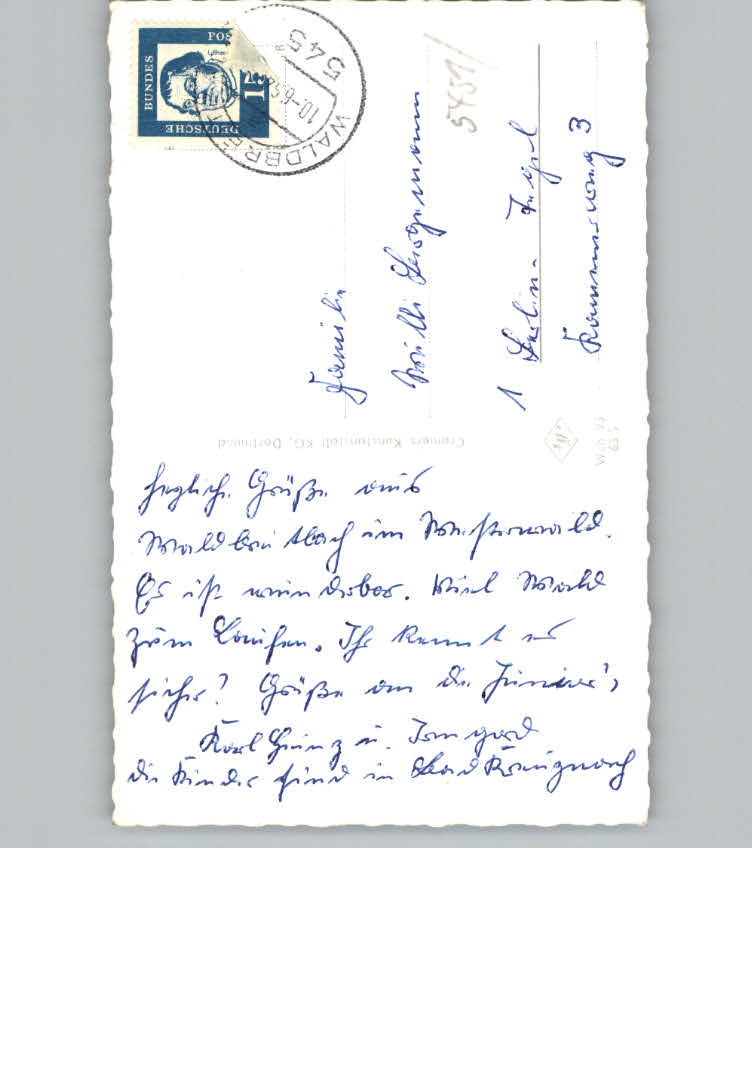 herzliche Grüße aus
Waldbreitbach im Westerwald.
Es ist wunderbar. Viel Wald
zum Laufen. Ihr kennt es
sicher? Grüße an die Junior's
Karl Heinz u. Irmgard
die Kinder sind in Bad Kreuznach
Familie
Willi
1 Berlin-Tegel
3
5451
DEUTSCHE
BUNDES
POS
15
545
WALDBREIT
10-6.
Cramers Kunstanstalt KG, Dortmund